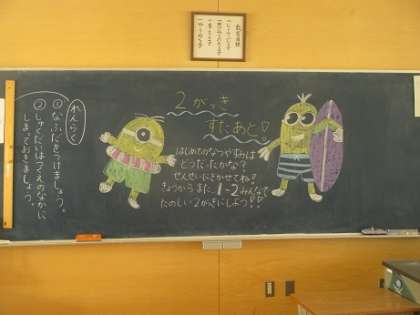 2がっき
すたあと!
はじめてのなつやすみは
どうだったかな?
せんせいにきかせてね!
きょうからまた、1-2みんなで
たのしい2がっきにしよう!!
れんらく
①なふだをつけましょう。
②しゅくだいはつくえのなかに
しまっておきましょう。